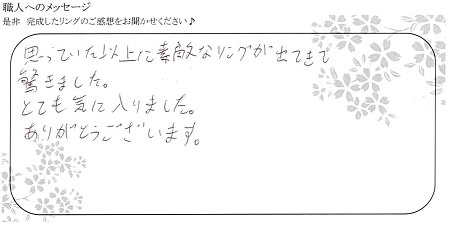 職人へのメッセージ
是非 完成したリングのご感想をお聞かせください♪
思っていた以上に素敵なリングが出てきて
驚きました。
とても気に入りました。
ありがとうございます。